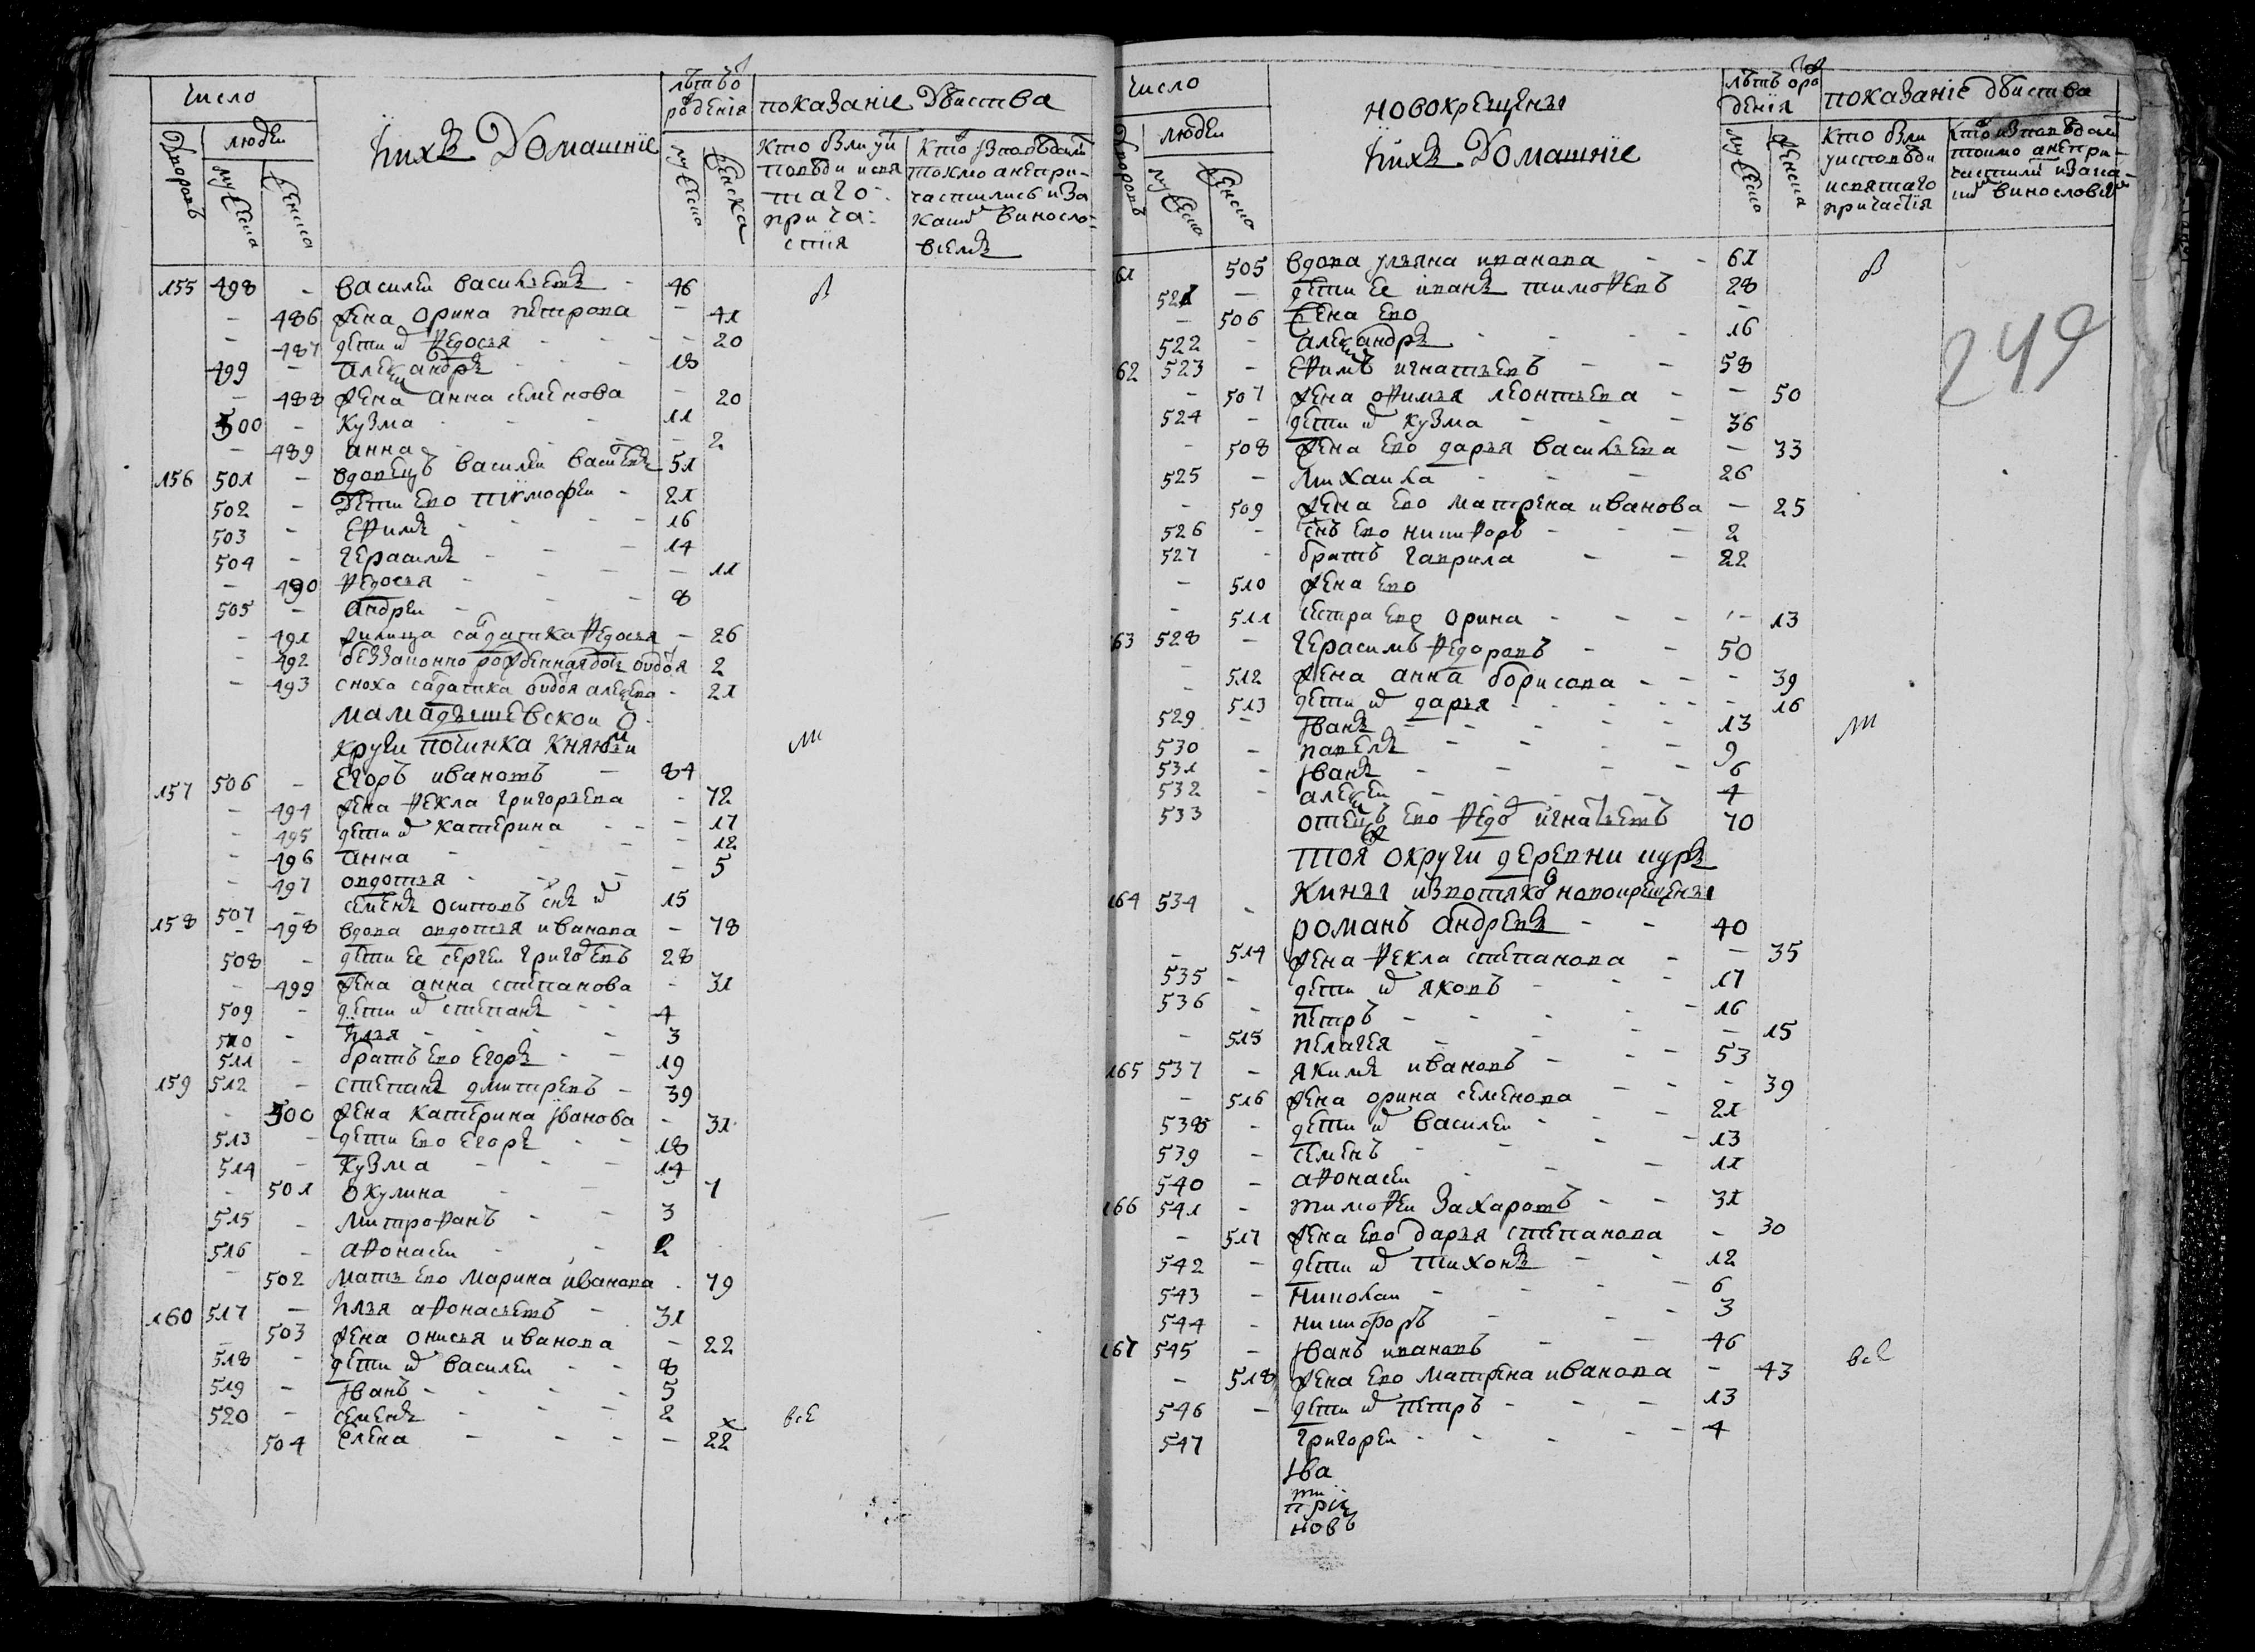 число
людеи
дворовъ
мужеска
женска
ѝихъ Домашнїе
лѣтъ о рождения
мужеска
женска
показанїе Дѣиства
кто были уи
повѣди и свя
таго
прича:
стия
кто ізповѣдали
токмо а непри-
частились и за
каим виносло-
виемъ
155 498 - василеи василъевъ - 46 в
- 486 жена орина петрова - 41
- 487 дети их ѳедосья - 20
499 - алеѯандръ - 18
- 488 жена анна семенова - 20
500 - кузма - 11
- 489 анна - 2
156 501 - вдовецъ василеи василевъ 51
502 - дети ево тимоѳеи - 21
503 - еѳимъ - 16
504 - герасимъ - 14
- 490 ѳедосья - 11
505 - андреи - 8
- 491 салдатка ѳедосья - 26
- 492 беззаконно рожденная дочь овдотья 2
- 493 сноха салдатка овдотья алеѯеева - 21
мамадышевской о-
круги починка княюзеи м
157 506 - Егоръ ивановъ - 84
- 494 жена ѳекла григоръева - 72
- 495 дети их катерина - 17
- 496 анна - 12
- 497 овдотья - 5
158 507 - семенъ осиповъ снъ их 15
- 498 вдова овдотья иванова - 78
508 - дети ее сергеи григоревъ 28
- 499 жена анна степанова - 31
509 - дети их степанъ - 4
510 - илья - 3
511 - братъ ево егоръ - 19
159 512 - степанъ дмитревъ - 39
- 500 жена катерина іванова - 31
513 - дети ево егоръ - 18
514 - кузма - 14
- 501 окулина - 7
515 - митроѳанъ - 3
516 - аѳонасеи - 2
- 502 мать ево марина иванова - 79
160 517 - илья аѳонасьевъ - 31
- 503 жена онисья иванова - 22
518 - дети их василеи - 8
519 - іванъ - 5
520 - семенъ - 2
504 елена - 22 всѣ
число
людеи
дворовъ
мужеска
женска
новокрещены
ѝихъ Домашнїе
лѣтъ о рождения
мужеска
женска
показанїе дѣиства
кто были
уисповѣди
и святаго
причастия
кто изповѣдали
токмо а непри-
частили и за ка-
им винословием
249
61 505 вдова ульяна иванова - 61 в
521 - дети ее иванъ тимоѳевъ 28
- 506 жена ево -
522 - алеѯандръ - 16
62 523 - еѳимъ игнатьевъ - 58
- 507 жена оѳимья леонтьева - 50
524 - дети их кузма - 36
- 508 жена ево дарья василъева - 33
525 - михаила - 26
- 509 жена ево матрена иванова - 25
526 - снъ ево никиѳоръ - 2
527 - братъ гаврила - 22
- 510 жена ево
- 511 сестра ево орина - 13
63 528 - герасимъ ѳедоровъ - 50
- 512 жена анна борисова - 39
- 513 дети их дарья - 16
529 - іванъ - 13 м
530 - павелъ - 9
531 - іванъ - 6
532 - алеѯеи - 4
533 отецъ ево ѳедо игнатьевъ 70
тоя округи деревни цурѣ
кины извотяковъ новокрещены
164 534 - романъ андревъ - 40
- 514 жена ѳекла степанова - 35
535 - дети их яковъ - 17
536 - петръ - 16
- 515 пелагея - 15
165 537 - якимъ ивановъ - 53
- 516 жена орина семенова - 39
538 - дети их василеи - 21
539 - семенъ - 13
540 - аѳонасеи - 11
166 541 - тимоѳеи захаровъ - 31
- 517 жена ево дарья степанова - 30
542 - дети их тихонъ - 12
543 - николаи - 6
544 - никифоръ - 3
167 545 - іванъ ивановъ - 46 всѣ
- 518 жена ево матрена иванова - 43
546 - дети их петръ - 13
547 григореи - 4
іва
ти
при
новъ